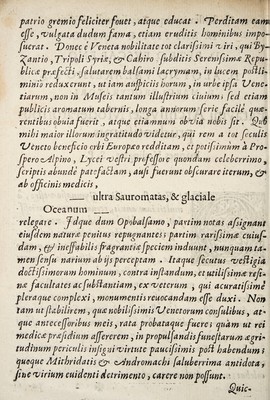 patrio gremio feliciter fouet, atque educat. Perditam eam
esse, vulgata dudum fama, etiam eruditis hominibus impo-
suerat. Donec è Veneta nobilitate tot clarissimi viri, qui By-
Zantio, Tripoli Syriæ, & Cahiro subditis Serenissimæ Repu-
blicæ præfecti, salutarem balsami lacrymam, in lucem postli-
minio reduxerunt, ut iam auspicijs horum, in urbe ipsa Vene-
tiarum, non in Museis tantum illustrium ciuium, sed etiam
publicis aromatum tabernis, longa annorum serie facilè quæ-
rentibus obuia fuerit, atque etiamnum obvia nobis sit. Quo
mihi maior illorum ingratitudo videtur, qui rem a tot seculis
Veneto beneficio orbi Europæo redditam, et potissimùm à Pro-
spero Alpino, Lycei vestri professore quondam celeberrimo,
scriptis abundè patefactam, ausi fuerunt obscurare iterum, &
ab officinis medicis,
ultra Sauromatas, & glaciale
Oceanum
relegare. Idque dum Opobalsamo, partim notas assignant
eiusdem naturæ penitus repugnantes partim rarissimæ cuius-
dam, & ineffabilis fragrantiæ speciem indunt, nunquam ta-
men sensu narium ab ijs perceptam. Itaque secutus vestigia
doctissimorum hominum, contra instandum, et utilissimæ resi-
næ facultates ac substantiam, ex veterum, qui acuratissimè
pleraque complexi, monumentis reuocandam esse duxi. Non
tam ut stabilirem, quæ nobilissimis Venetorum consulibus, at-
que antecessoribus meis, rata probataque fuere; quàm ut rei
medicæ præsidium assererem, in propulsandis funestarum ægri-
tudinum periculis insigni virtute paucissimis post habendum:
quoque Mithridatis & Andromachi saluberrima antidota,
sine virium euidenti detrimento, carere non possunt.
Quic-